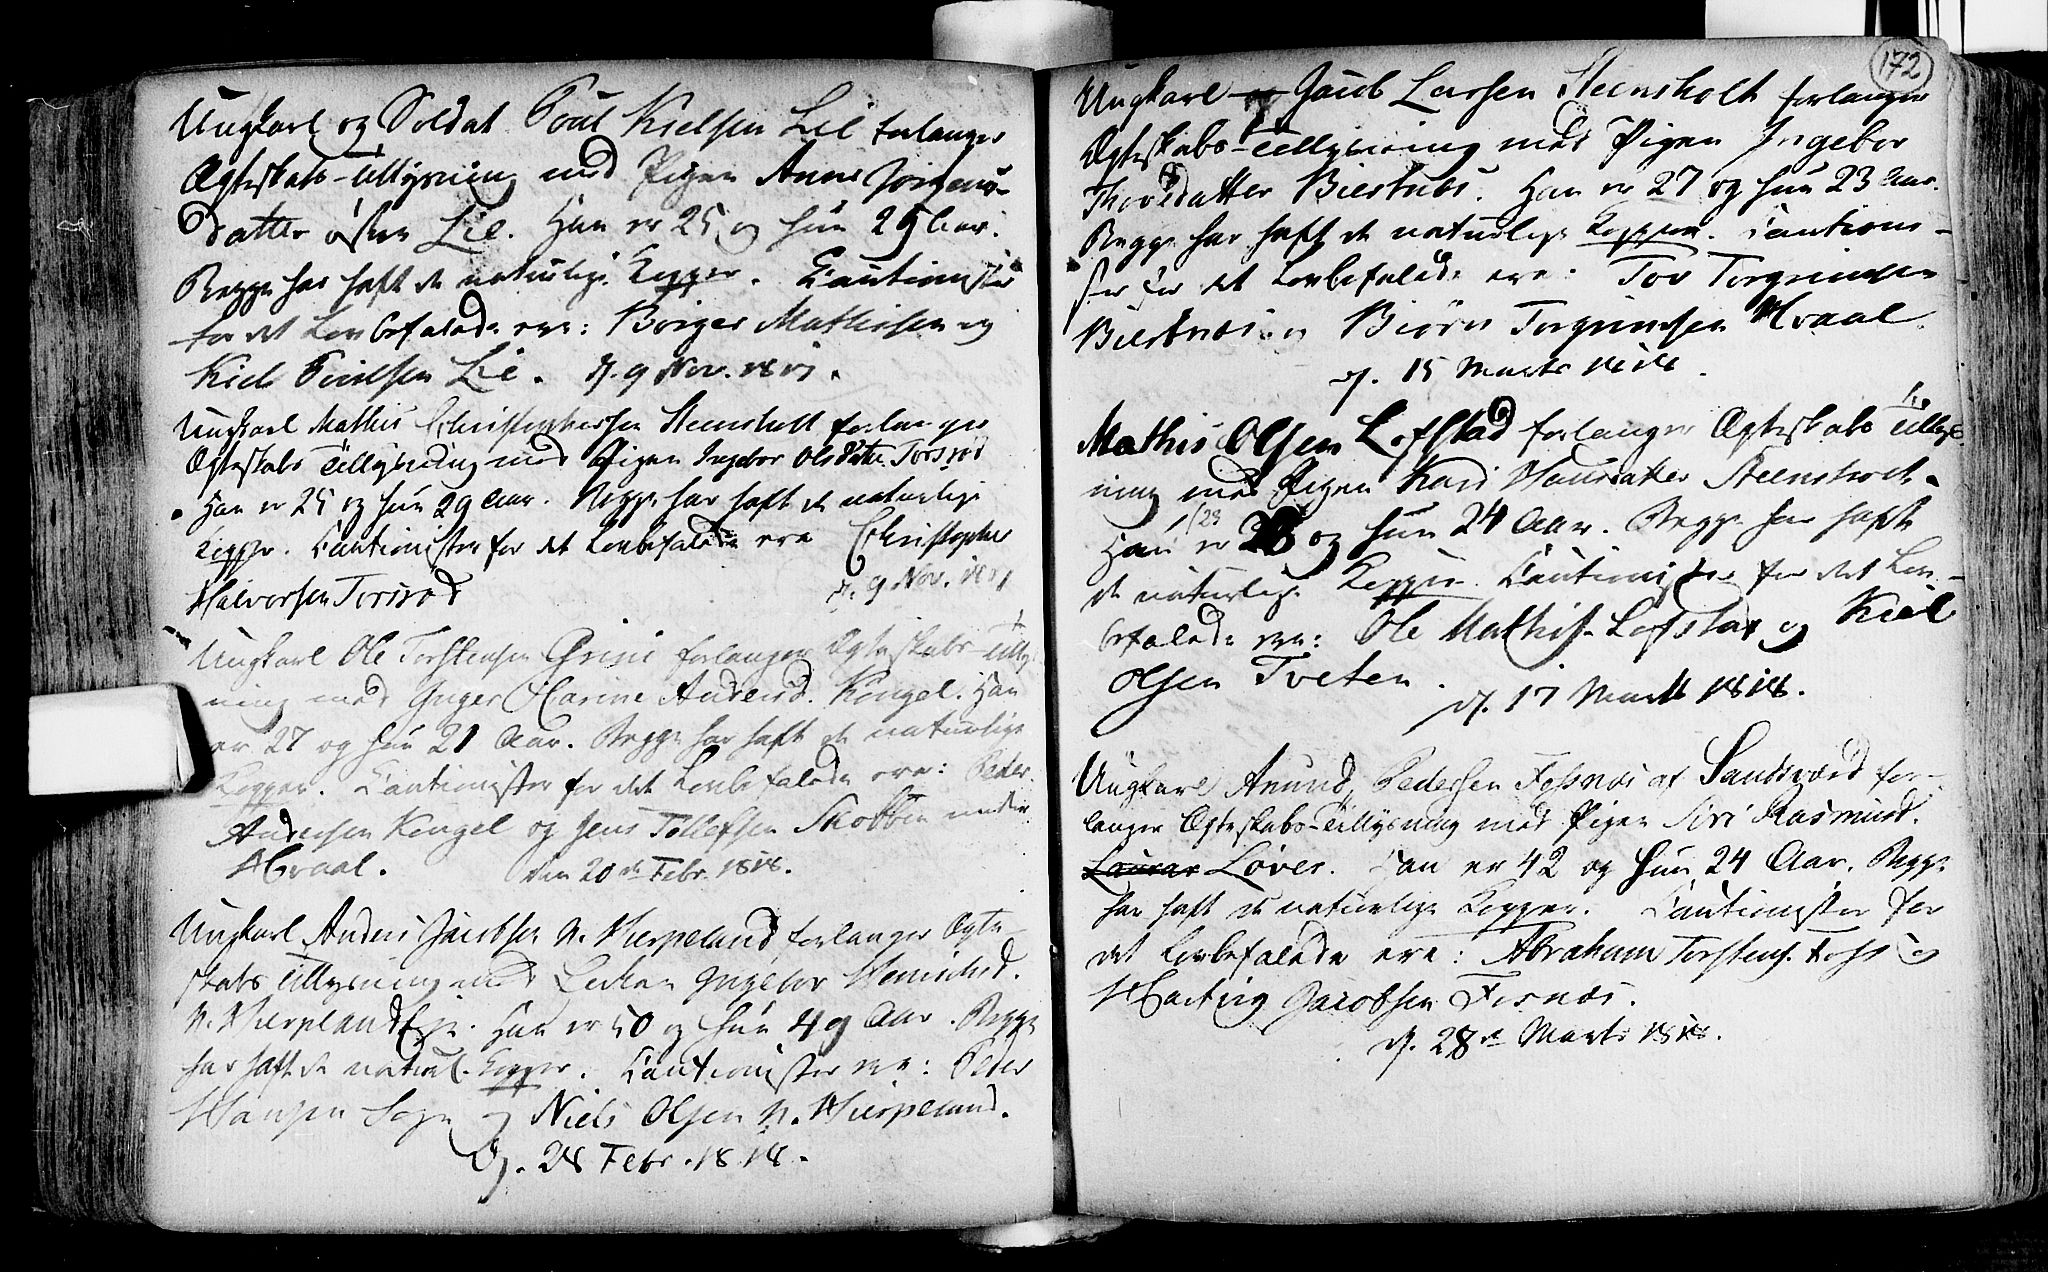 Ungkarl og Soldat Poul Kielsen Lie forlanger
Ægteskabs-Tillysning med Pigen Anne Jørgens-
datter østre Lie. Han er 25 og hun 29 Aar.
Begge har haft de naturlige Kopper. Cautionister
for det Lovbefalede ere: Børger Mathissen og
Kiels Poulsen Lie. d. 9 Nov. 1817.
Ungkarl Mathis Christophersen Steensholt forlanger
Ægteskabs Tillysning med Pigen Ingebor Olsdatter Torsrød
Han er 25 og hun 29 Aar. Begge har haft de naturlige
Kopper. Cautionister for det Lovbefalede ere Christopher
Halvorsen Torsrød d. 9 Nov. 1817
Ungkarl Ole Torstensen Grini forlanger Ægteskabs-Tillys-
ning med Inger Marine Andersd. Kengel. Han
er 27 og hun 21 Aar. Begge har haft de naturlige
Kopper. Cautionister for det Lovbefalede ere: Peder
Andersen Kengel og Jens Tollefsen Skobben nedre
Hvaal. den 20de Febr. 1818.
Ungkarl Anders Jacobsen N. Hierpeland forlanger Ægte-
skabs Tillysning med Enken Ingebor
N. Hierpeland Eje. Han er 50 og hun 49 Aar. Begge
har haft de naturl. Kopper. Cautionister ere: Peder
Hansen og Niels Olsen N. Hierpeland.
d. 28 Febr. 1818.
172
Ungkarl Jacob Larsen Steensholt forlanger
Ægteskabs-Tillysning med Pigen Ingebor
Thovsdatter Bierknes. Han er 27 og hun 23 Aar.
Begge har haft de naturlige Kopper. Cautioni-
ster for det Lovbefalede ere: Tov Torgrimsen
Bierknes og Biørn Torgrimsen Hvaal.
d. 15 Marts 1818.
Mathis Olsen Lofstad forlanger Ægteskabs Tillys-
ning med Pigen Kari Hansdatter Steensholt.
Han er 28 og hun 24 Aar. Begge har haft
de naturlige Kopper. Cautionister for det Lov-
befalede ere: Ole Mathis. Lofstad og Kield
Olsen Tveten.
d. 17 Marts 1818.
Ungkarl Anund Pedersen Fossnæs af Sandsværd for-
langer Ægteskabs-Tillysning med Pigen Siri Rasmusd.
Løver. Han er 42 og hun 24 Aar. Begge
har haft de naturlige Kopper. Cautionister for
det Lovbefalede ere: Abraham Torstens. Foss og
Harting Jacobsen Fosnæs.
d. 28de Marts 1818.